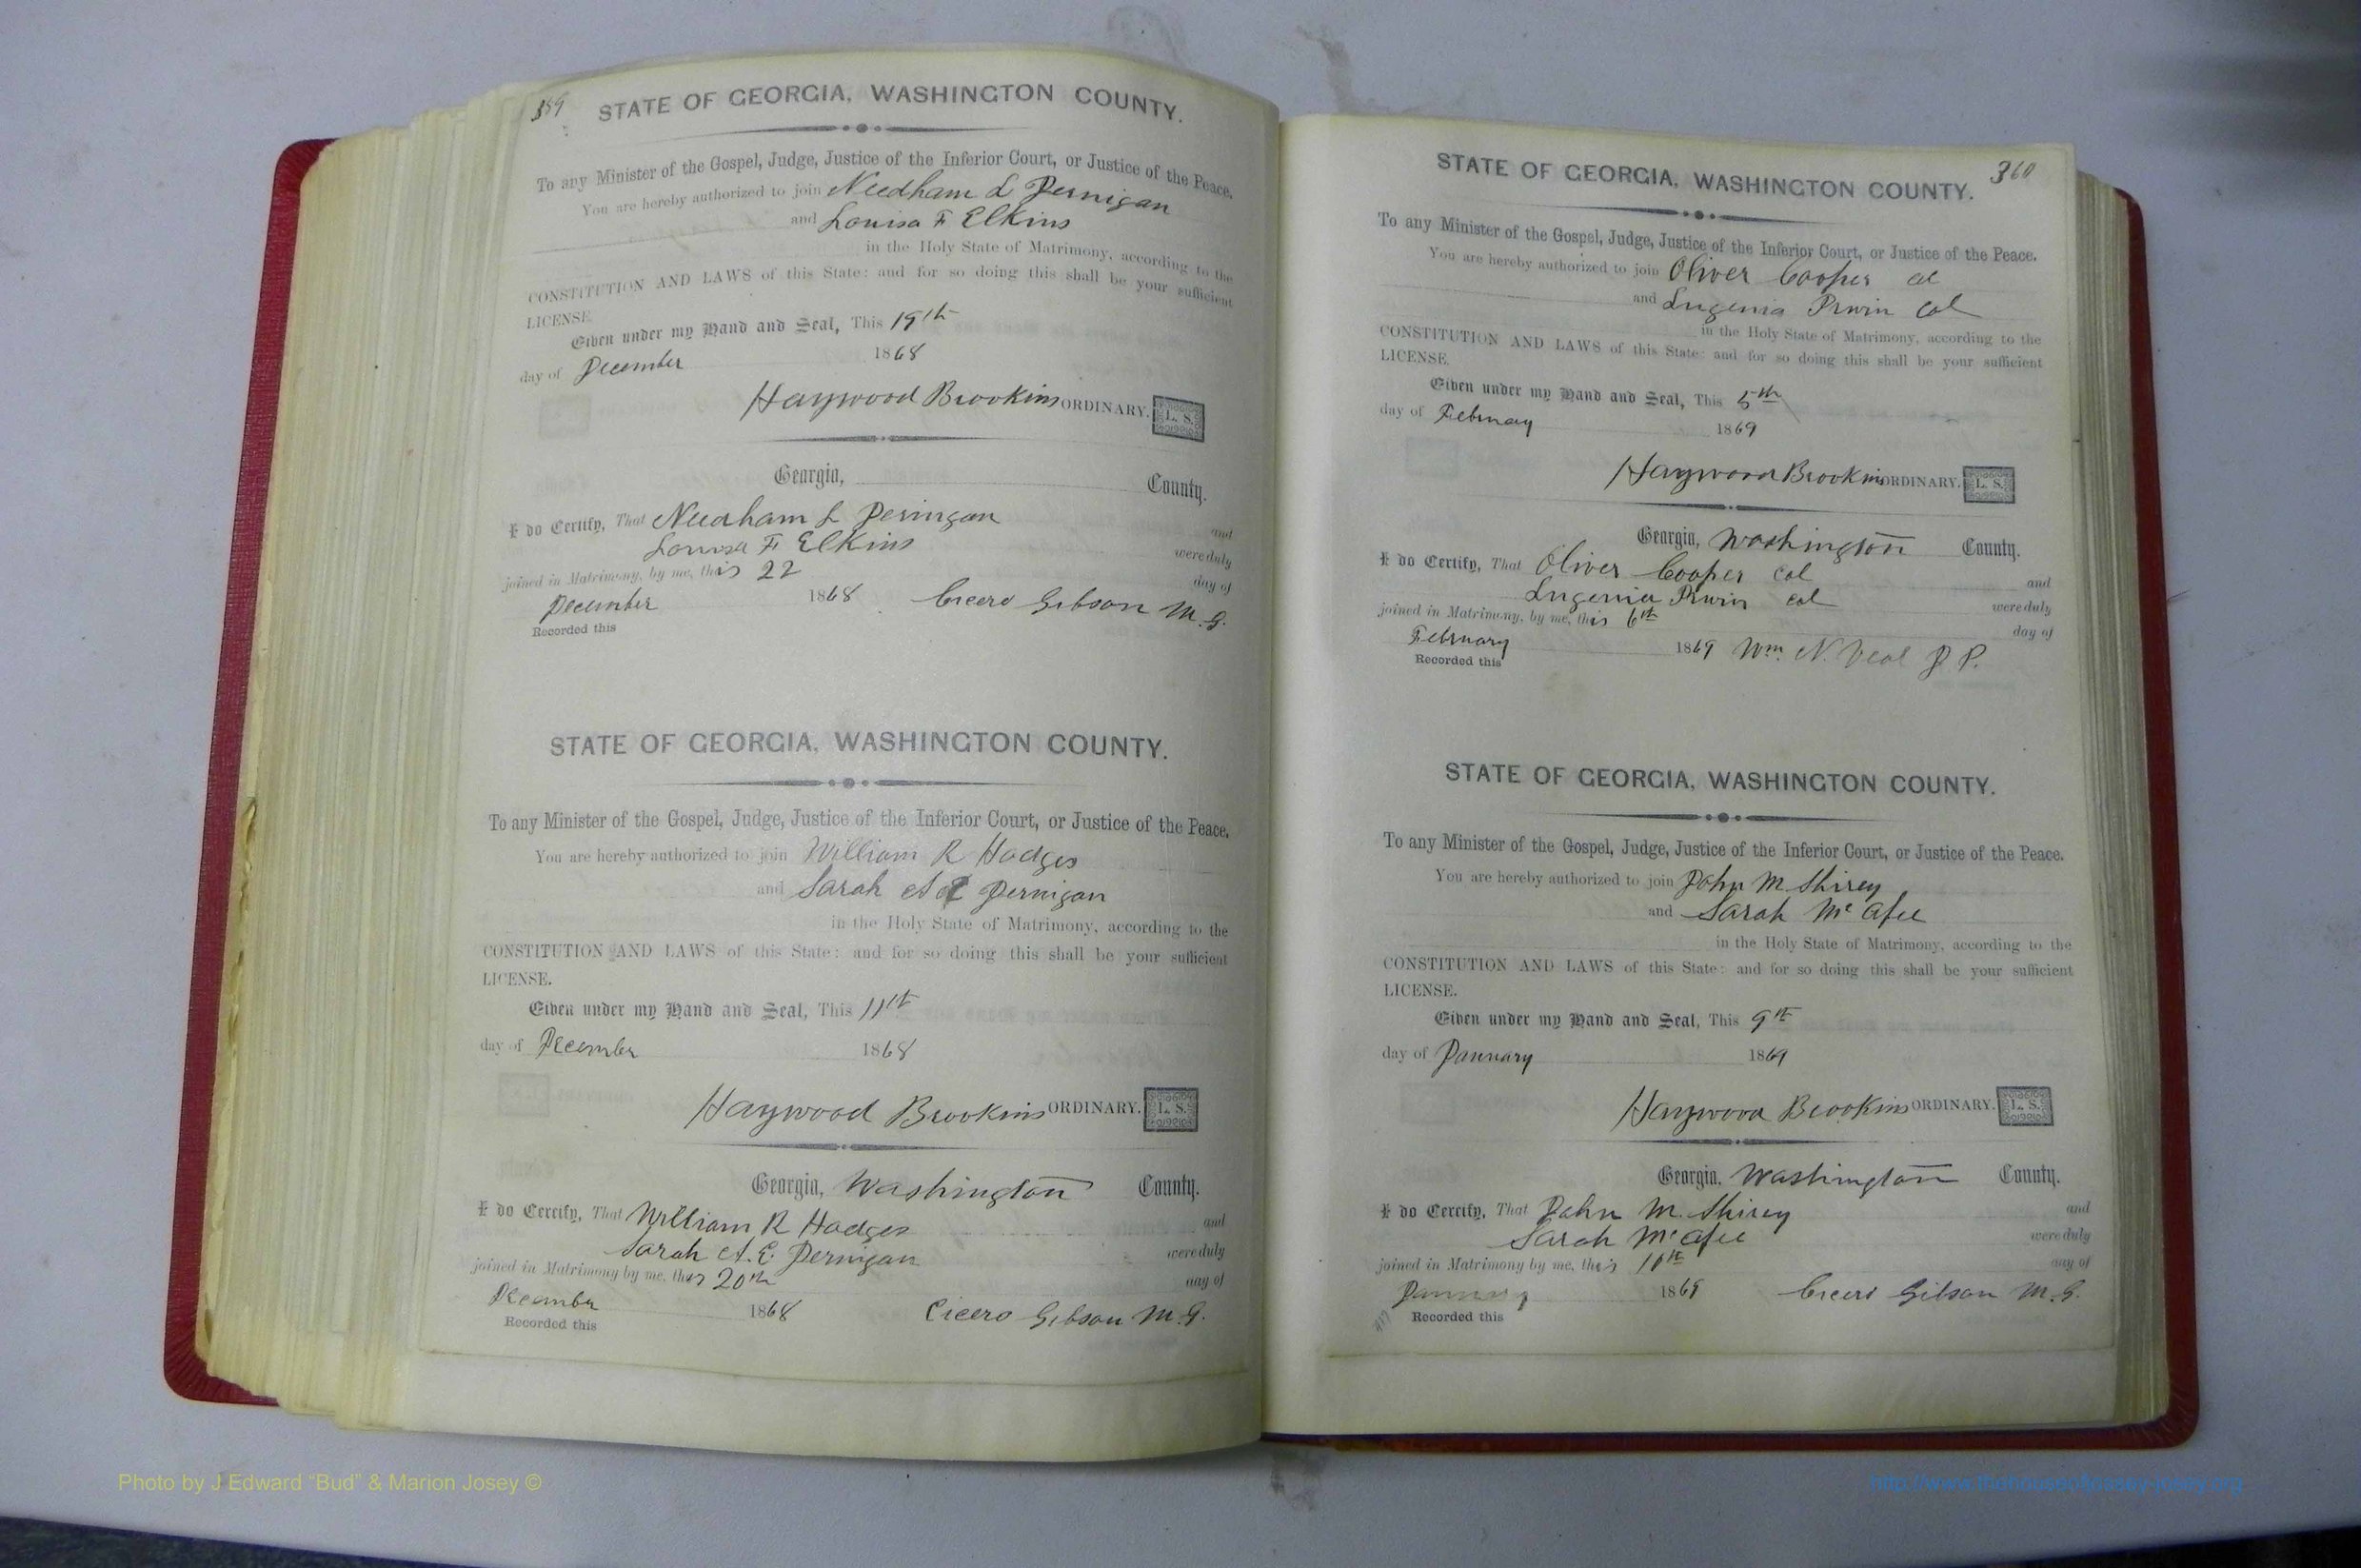 359
STATE OF GEORGIA, WASHINGTON COUNTY.
To any Minister of the Gospel, Judge, Justice of the Inferior Court, or Justice of the Peace.
You are hereby authorized to join Needham L Jernigan
and Louisa F Elkins
in the Holy State of Matrimony, according to the
CONSTITUTION AND LAWS of this State: and for so doing this shall be your sufficient
LICENSE.
Given under my Hand and Seal, This 19th
day of December 1868
Haywood Brookins ORDINARY. L. S.
Georgia, County.
I do Certify, That Needham L Jernigan and
Louisa F Elkins were duly
joined in Matrimony, by me, this 22 day of
December 1868 Cicero Gibson M.G.
Recorded this
STATE OF GEORGIA, WASHINGTON COUNTY.
To any Minister of the Gospel, Judge, Justice of the Inferior Court, or Justice of the Peace.
You are hereby authorized to join William R Hodges
and Sarah A E Jernigan
in the Holy State of Matrimony, according to the
CONSTITUTION AND LAWS of this State: and for so doing this shall be your sufficient
LICENSE.
Given under my Hand and Seal, This 11th
day of December 1868
Haywood Brookins ORDINARY. L. S.
Georgia, Washington County.
I do Certify, That William R Hodges and
Sarah A. E. Jernigan were duly
joined in Matrimony by me, this 20th day of
December 1868 Cicero Gibson M.G.
Recorded this
360
STATE OF GEORGIA, WASHINGTON COUNTY.
To any Minister of the Gospel, Judge, Justice of the Inferior Court, or Justice of the Peace.
You are hereby authorized to join Oliver Cooper col
and Eugenia Irwin Col
in the Holy State of Matrimony, according to the
CONSTITUTION AND LAWS of this State: and for so doing this shall be your sufficient
LICENSE.
Given under my Hand and Seal, This 5th
day of February 1869
Haywood Brookins ORDINARY. L. S.
Georgia, Washington County.
I do Certify, That Oliver Cooper col and
Eugenia Irwin col were duly
joined in Matrimony, by me, this 6th day of
February 1869 Wm. N. Veal J P.
Recorded this
STATE OF GEORGIA, WASHINGTON COUNTY.
To any Minister of the Gospel, Judge, Justice of the Inferior Court, or Justice of the Peace.
You are hereby authorized to join John M Shirey
and Sarah McAfee
in the Holy State of Matrimony, according to the
CONSTITUTION AND LAWS of this State: and for so doing this shall be your sufficient
LICENSE.
Given under my Hand and Seal, This 9th
day of January 1869
Haywood Brookins ORDINARY. L. S.
Georgia, Washington County.
I do Certify, That John M. Shirey and
Sarah McAfee were duly
joined in Matrimony by me, this 10th day of
January 1869 Cicero Gibson M.G.
Recorded this
Photo by J Edward “Bud” & Marion Josey ©